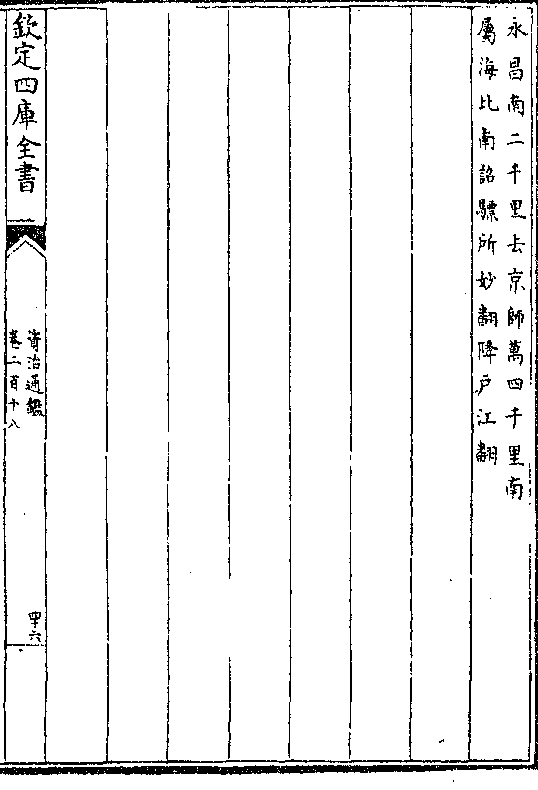 永昌南二千里去京師萬四千里南
屬海比南詔驃所妙翻降戸江翻
欽定四庫全書
資治通鑑
卷二百十八
四十六